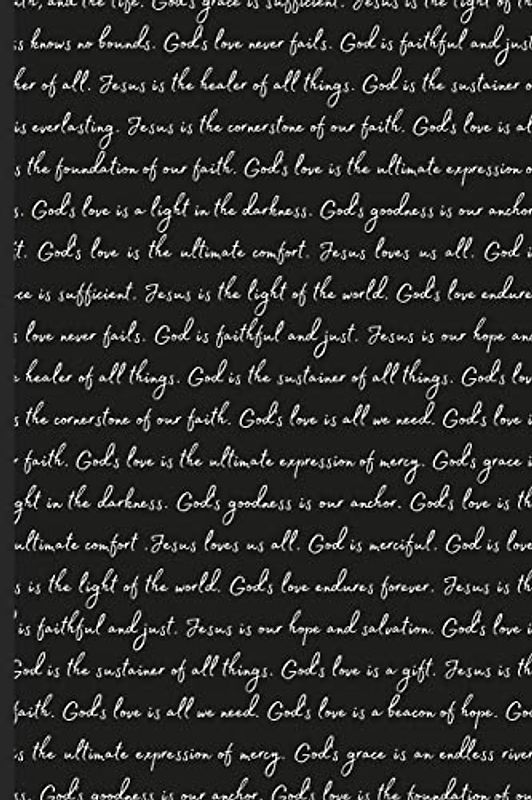 and the life. God's grace is sufficient. Jesus is the light of th
s knows no bounds. God's love never fails. God is faithful and just
her of all. Jesus is the healer of all things. God is the sustainer o
is everlasting. Jesus is the cornerstone of our faith. God's love is al
s the foundation of our faith. God's love is the ultimate expression o
s. God's love is a light in the darkness. God's goodness is our ancho
t. God's love is the ultimate comfort. Jesus loves us all. God i
ce is sufficient. Jesus is the light of the world. God's love endure
s love never fails. God is faithful and just. Jesus is our hope an
e healer of all things. God is the sustainer of all things. God's lov
s the cornerstone of our faith. God's love is all we need. God's love i
r faith. God's love is the ultimate expression of mercy. God's grace i
ght in the darkness. God's goodness is our anchor. God's love is th
ultimate comfort .Jesus loves us all. God is merciful. God is love
s is the light of the world. God's love endures forever. Jesus is th
is faithful and just. Jesus is our hope and salvation. God's love i
God is the sustainer of all things. God's love is a gift. Jesus is th
faith. God's love is all we need. God's love is a beacon of hope. Go
s the ultimate expression of mercy. God's grace is an endless river
ss. God's goodness is our anchor. God's love is the foundation of ou